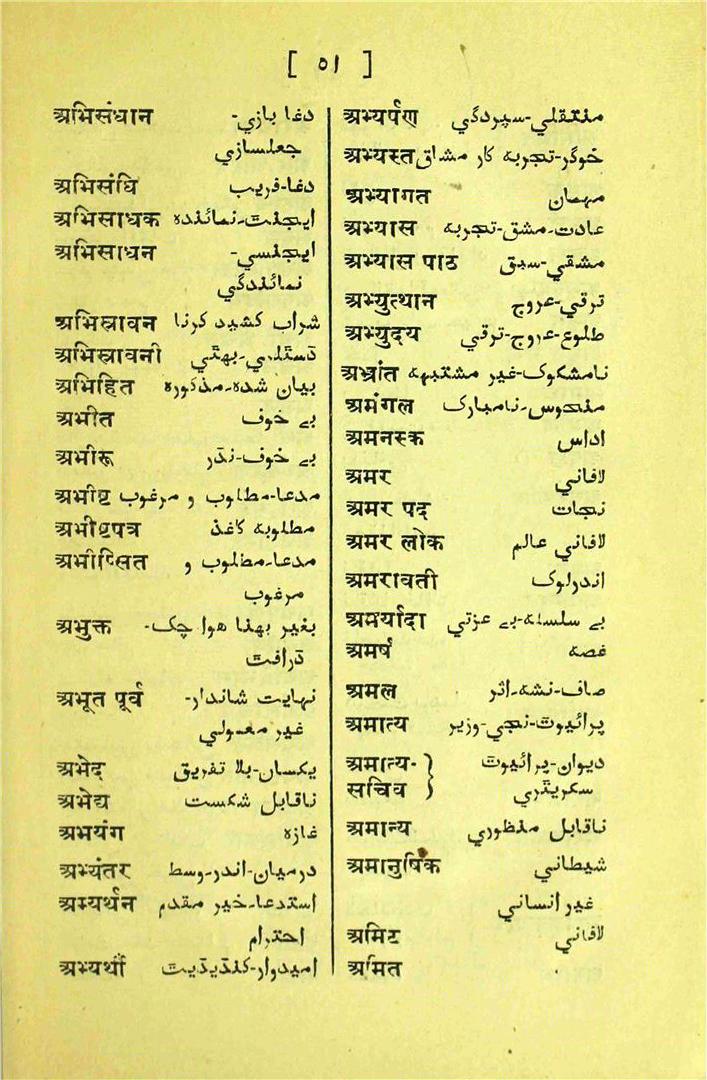 [ ۵۱ ]
अभिसंधान دغا بازي-
جعلسازي
अभिसंधि دغا-فریب
अभिसाधक ایجنٹ-نمائندہ
अभिसाधन ایجنسي-
نمائندگي
अभिस्रावन شراب کشید کرنا
अभिस्रावनी ڈسٹلري-بھٹي
अभिहित بیان شدہ-مذکورہ
अभीत بے خوف
अभीरू بے خوف-نڈر
अभीष्ट مدعا-مطلوب و مرغوب
अभीष्टपत्र مطلوبہ کاغذ
अभीप्सित مدعا-مطلوب و
مرغوب
अभुक्त بغیر بھنا ھوا چک-
ڈرافٹ
अभूत पूर्व نہایت شاندار-
غیر معمولي
अभेद یکساں-بلا تفریق
अभेद्य ناقابل شکست
अभयंग غازہ
अभ्यंतर درمیان-اندر-وسط
अभ्यर्थन استدعا-خیر مقدم
احترام
अभ्यर्थी امیدوار-کنڈیڈیٹ
अभ्यर्पण منتقلي-سپردگي
अभ्यस्त خوگر-تجربہ کار مشاق
अभ्यागत مہمان
अभ्यास عادت-مشق-تجربہ
अभ्यास पाठ مشقي-سبق
अभ्युत्थान ترقي-عروج
अभ्युदय طلوع-عروج-ترقي
अभ्रांत نامشکوک-غیر مشتبہہ
अमंगल منحوس-نامبارک
अमनस्क اداس
अमर لافاني
अमर पद نجات
अमर लोक لافاني عالم
अमरावती اندرلوک
अमर्यादा بے سلسلہ-بے عزتي
अमर्ष غصہ
अमल صاف-نشہ-اثر
अमात्य پرائیوٹ-نجي-وزیر
अमात्य- دیوان-پرائیوٹ
सचिव سکریٹري
अमान्य ناقابل منظوري
अमानुषिक شیطاني
غیر انساني
अमिट لافاني
अमित